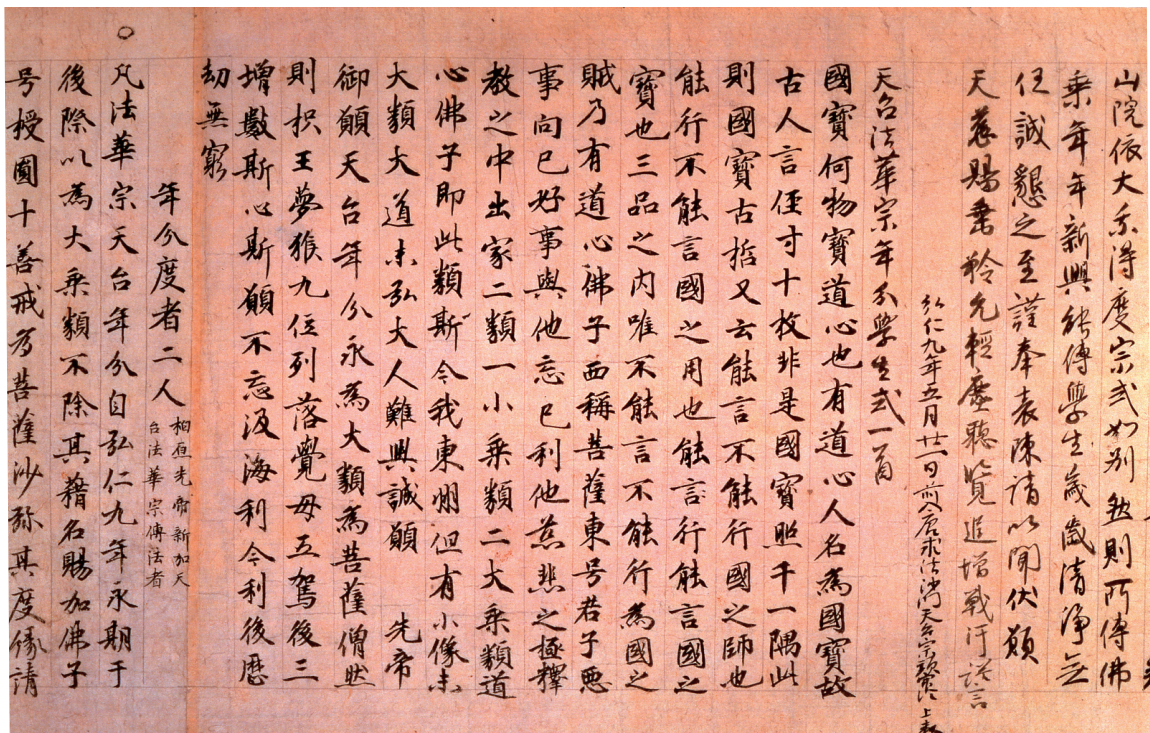 山院依大乘得度宗式如别然則所傳佛
乘年年新興能傳學生歲歲清淨無
任誠懇之至謹奉表陳請以聞伏願
天慈賜垂矜允輕塵聽覽追增戰汗謹言
弘仁九年五月廿一日前入唐求法沙門天台宗最澄上表
天台法華宗年分學生式一首
國寶何物寶道心也有道心人名為國寶故
古人言俓寸十枚非是國寶照千一隅此
則國寶古哲又云能言不能行國之師也
能行不能言國之用也能言行能言國之
寶也三品之内唯不能言不能行為國之
賊乃有道心佛子西稱菩薩東号君子悪
事向己好事與他忘己利他慈悲之極釋
教之中出家二類一小乘類二大乘類道
心佛子即此類斯今我東州但有小像未
大類大道未弘大人難興誠願 先帝
御願天台年分永為大類為菩薩僧然
則枳王夢猴九位列落覺母五駕後三
增數斯心斯願不忘汲海利今利後歷
劫無窮
年分度者二人 柏原先帝新加天
台法華宗傳法者
凡法華宗天台年分自弘仁九年永期于
後際以為大乘類不除其籍名賜加佛子
号授圓十善戒為菩薩沙弥其度縁請